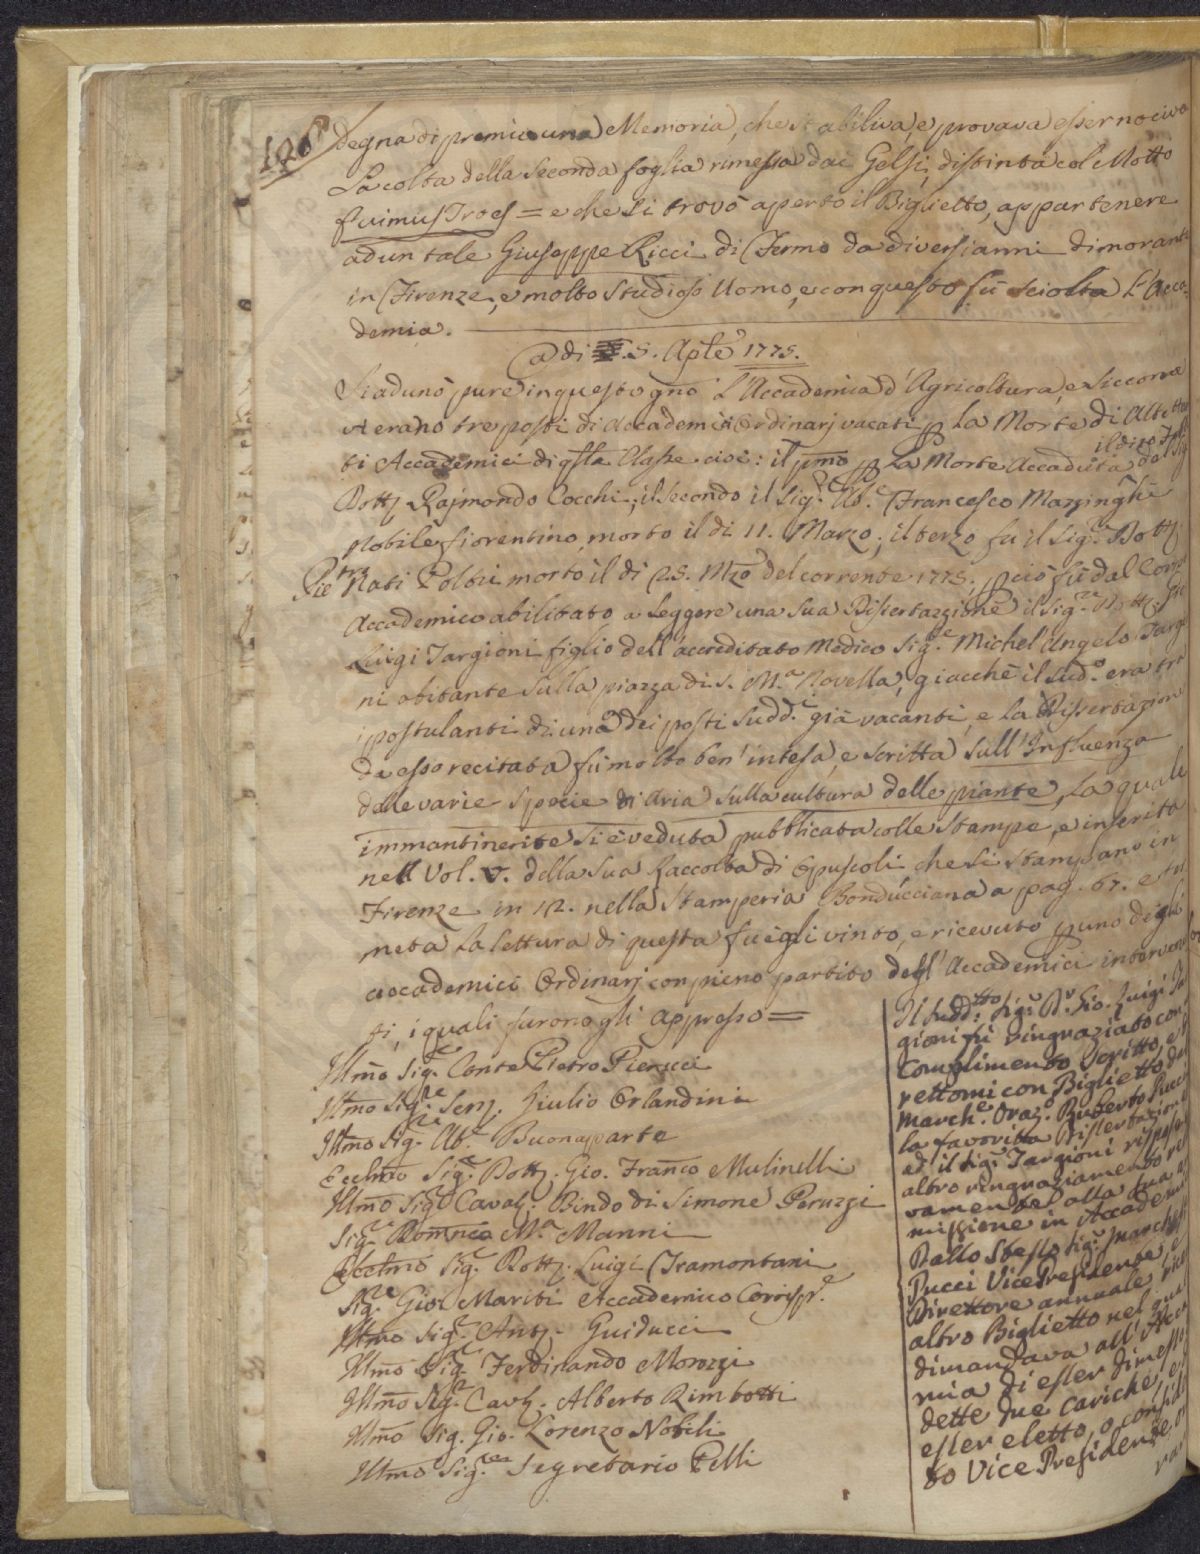 126
degna di premio una Memoria, che stabiliva, e provava esser nociva
La colta della Seconda foglia rimessa dai Gelsi, distinta col Motto
fuimus Troes = e che si trovò aperto il Biglietto, appartenere
ad un tale Giuseppe Ricci di Fermo da diversi anni dimorante
in Firenze, e molto studioso Uomo, e con questo fù sciolta L'Acca-
demia.
Adi 5. Aple 1775.
Si adunò pure in questo gno L'Accademia d'Agricoltura, e siccome
vi erano tre posti di Accademici Ordinarj vacati p La Morte di
ti Accademici di qsta Classe cioè: il pmo p La Morte Accaduta del Sig
Dottr. Rajmondo Cocchi, il Secondo il Sig.re Ab.e Francesco Mazzinghi
Nobile fiorentino morto il di 11. Marzo, il terzo fu il Sig.re Dottr
Nati Poltri morto il di 25. Mzo del corrente 1775. pciò fù dal Corpo
Accademico abilitato a Leggere una Sua Dissertazzione il Sig.re Dottr.
Luigi Targioni figlio dell'accreditato Medico Sig.re Michel'Angelo Targio
ni abitante sulla piazza di S. M.a Novella, giacchè il Sud.o era tra
i postulanti di uno dei posti Sudd.i già vacanti, e la Dissertazion
da esso recitata fù molto ben'intesa, e scritta sull'Influenza
delle varie Specie di Aria sulla cultura delle piante, La quale
immantinente si è veduta pubblicata colle Stampe, e inserita
nell Vol. V. della Sua Raccolta di Opuscoli che si stampano in
Firenze in 12. nella Stamperia Bonducciana a pag. 67. e ter
neta La lettura di questa fu egli vinto, e ricevuto p uno degli
accademici Ordinarj con pieno partito degl'Accademici interven
ti, i quali furono gli Appresso =
Illmo Sig.re Conte Pietro Pierucci
Illmo Sig.re Senr. Giulio Orlandini
Illmo Sig.re Ab.e Buonaparte
Eccllmo Sig.re Dottr. Gio. Franco Mulinelli
Illmo Sig.re Cavalr. Bindo di Simone Peruzzi
Sig.re Domnco M.a Manni
Eccllmo Sig.re Dottr. Luigi Tramontani
Sig.re Gio: Mariti Accademico Corrispe.
Illmo Sig.re Antr. Guiducci
Illmo Sig.re Ferdinando Morozzi
Illmo Sig.re Cavr. Alberto Rimbotti
Illmo Sig. Gio. Lorenzo Nobili
Illmo Sig.re Segretario Pelli
Il sudd.tto Sig.re D.r Gio. Luigi Tar
gioni fù ringraziato con
Complimento scritto, e
rettomi con Biglietto dal
March.e Oraz. Ruberto Pucci
la favorita Dissertazione
ed il Sig.re Targioni rispose
altro ringraziamento re
vamente alla sua a
missione in Accademi
Dallo stesso Sig.re Marchese
Pucci Vice Presidente, e
Direttore annuale
altro Biglietto nel qua
dimandava all'Acca
mia di esser dimesso
dette due cariche, e
esser eletto, o
to Vice Presidente